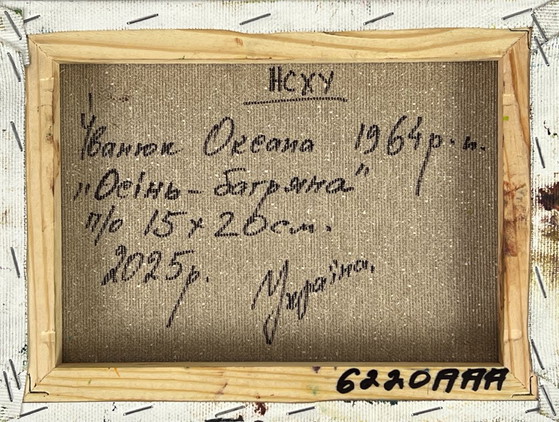 НСХУ
Іванюк Оксана 1964р.н.
„Осінь-багряна"
п/о 15х20см.
2025р.
Україна.
6220AAA